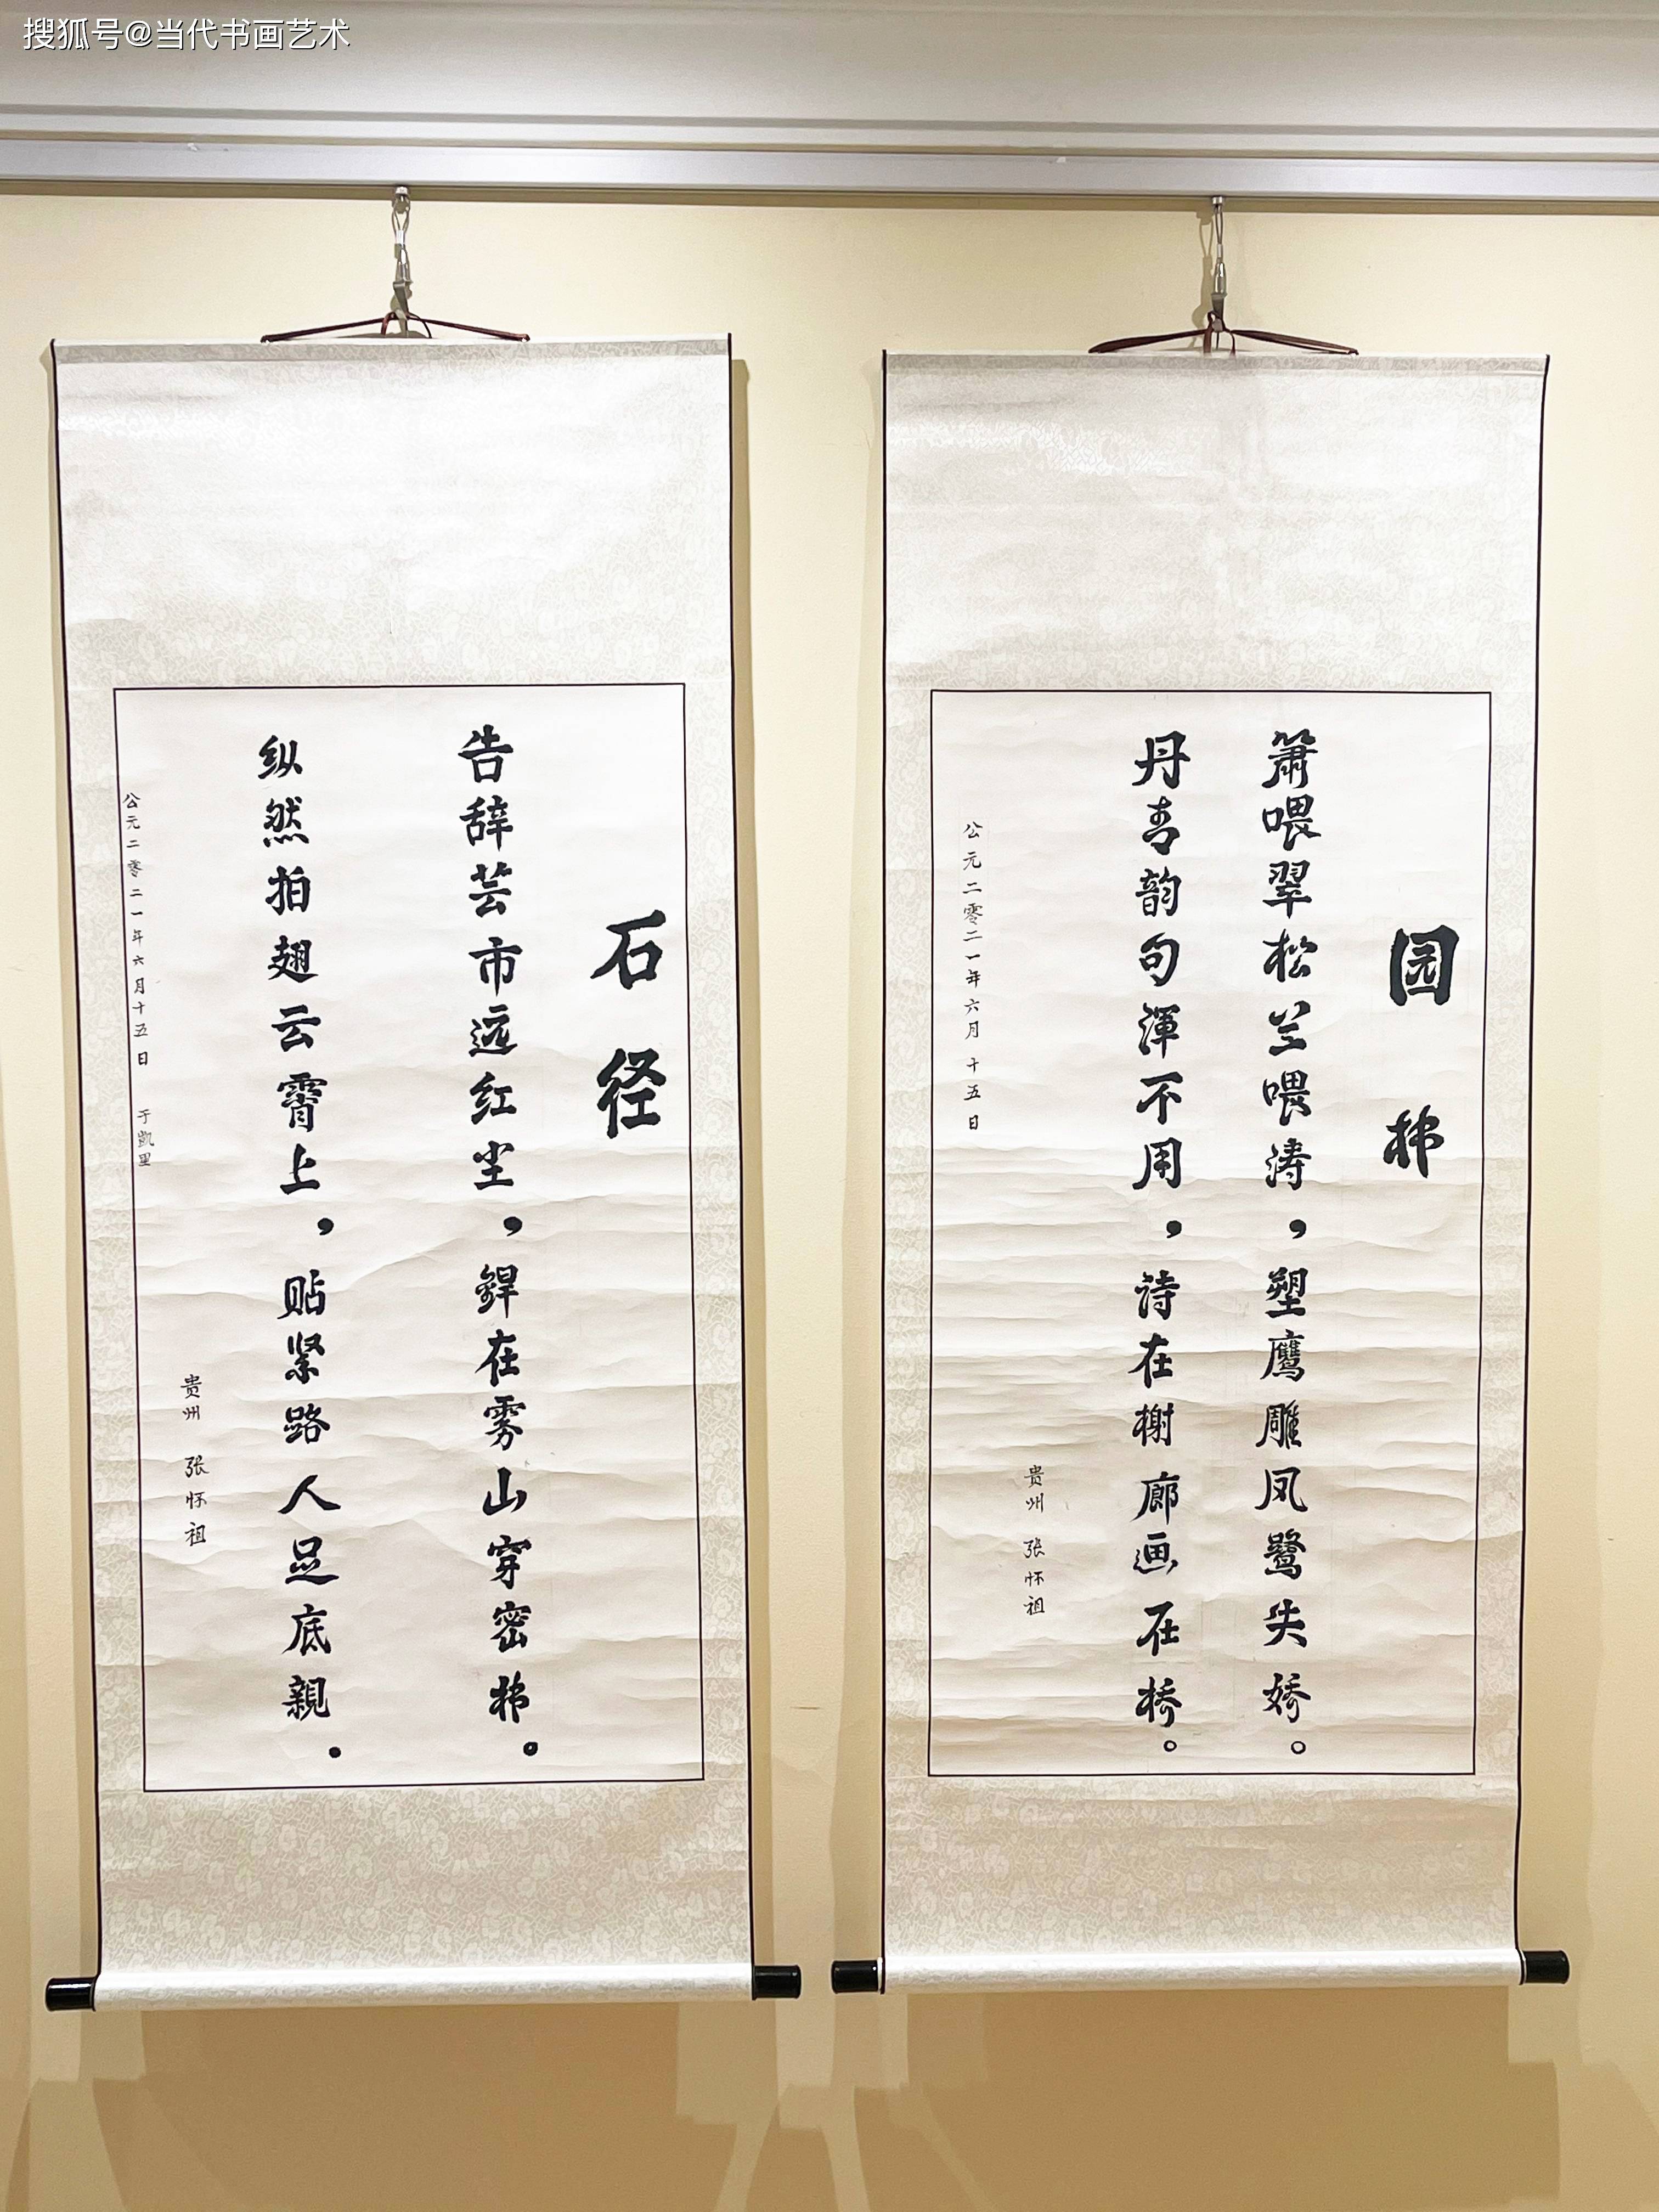 搜狐号@当代书画艺术
园林
簫喂翠松兰喂涛，塑鹰雕凤鹭失娇。
丹青韵句渾不用，诗在榭廊画在桥。
贵州 张怀祖
公元二零二一年六月十五日
石径
告辞芸市远红尘，銲在雾山穿密林。
纵然拍翅云霄上，贴紧路人足底親.
贵州 张怀祖
公元二零二一年六月十五日 于凯里